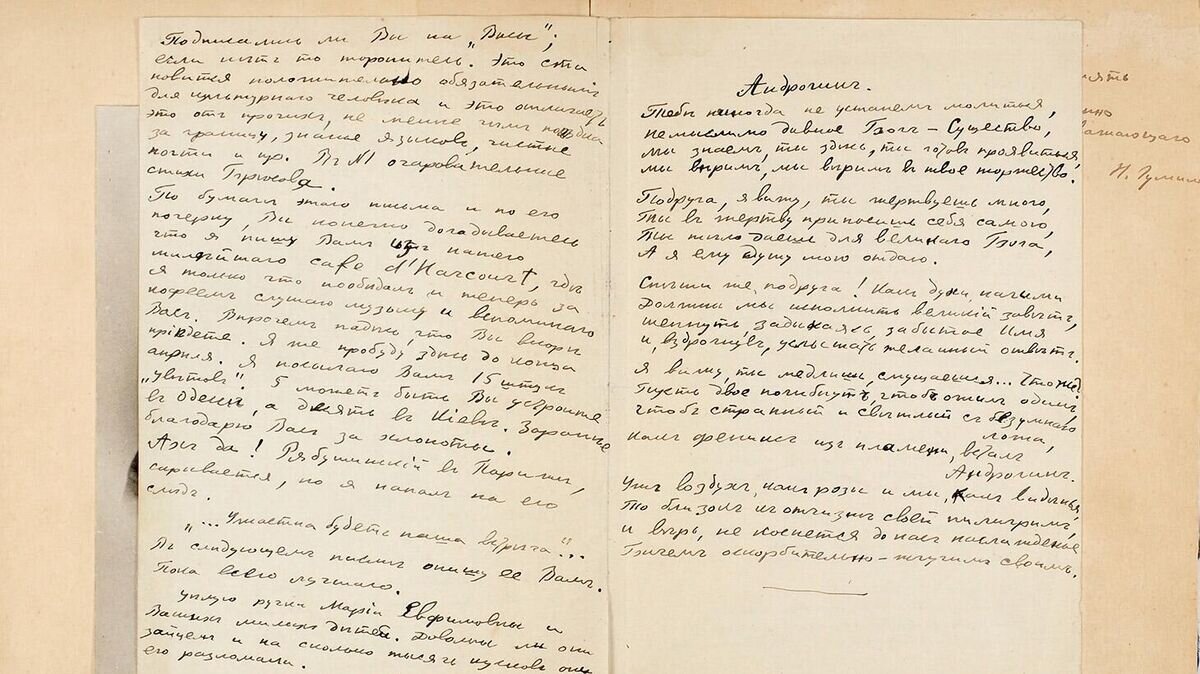 Подписались ли Вы на „Весы“;
если нѣтъ то торопитесь. Это ста
новится положительно обязательнымъ
для культурнаго человѣка и это отличаетъ
это отъ прочихъ, не менѣе чѣмъ поѣздка
за границу, знанье языковъ, чистые
ногти и пр. Въ N1 очаровательные
стихи Брюсова.
По бумагѣ этого письма и по его
почерку, Вы конечно догадываетесь
что я пишу Вамъ изъ нашего
милѣйшаго cafe d'Harcourt, гдѣ
я только что пообѣдалъ и теперь за
кофеемъ слушаю музыку и вспоминаю
Васъ. Впрочемъ надѣюсь, что Вы скоро
пріѣдете. Я же пробуду здѣсь до конца
апрѣля. Я посылаю Вамъ 15 штукъ
„Цвѣтовъ“. 5 можетъ быть Вы устроите
въ Одессѣ, а десять въ Кіевѣ. Заранѣе
благодарю Васъ за хлопоты.
Ахъ да! Рябушинскій въ Парижѣ,
скрывается, но я напалъ на его
слѣдъ.
„... Ужастна будетъ наша встрѣча“...
Въ слѣдующемъ письмѣ опишу ее Вамъ.
Пока всего лучшаго.
Цѣлую ручки Маріи Евфимовны и
Вашихъ милыхъ дѣтей. Довольны ли они
зайцемъ и на сколько тысячъ кусковъ они
его разломали.
Андрогинъ.
Тебѣ никогда не устанемъ молиться,
Немыслимо дивное Богъ – Существо,
Мы знаемъ, ты здѣсь, ты готовъ проявиться,
Мы вѣримъ, мы вѣримъ въ твое торжество.
Подруга, я вижу, ты жертвуешь много,
Ты въ жертву приносишь себя самою,
Ты тѣло даешь для великаго Бога,
А я ему душу мою отдаю.
Спѣши же, подруга! Какъ духи, нагими
Должны мы исполнить великій завѣтъ,
Шепнуть, задыхаясь, забытое Имя
И, вздрогнувъ, услышать желанный отвѣтъ.
Я вижу, ты медлишь, смущаешься... Что же?
Пусть двое погибнутъ, чтобъ ожилъ одинъ,
Чтобъ странный и свѣтлый съ безумнаго
ложа,
Какъ фениксъ изъ пламени, всталъ
Андрогинъ.
Ужъ воздухъ, какъ розы и мы, какъ видѣнья
То близокъ къ отчизнѣ своей пилигримъ,
И вѣрь, не коснется до насъ наслажденье
Бичемъ оскорбительно–жгучимъ своимъ.
Н. Гумил